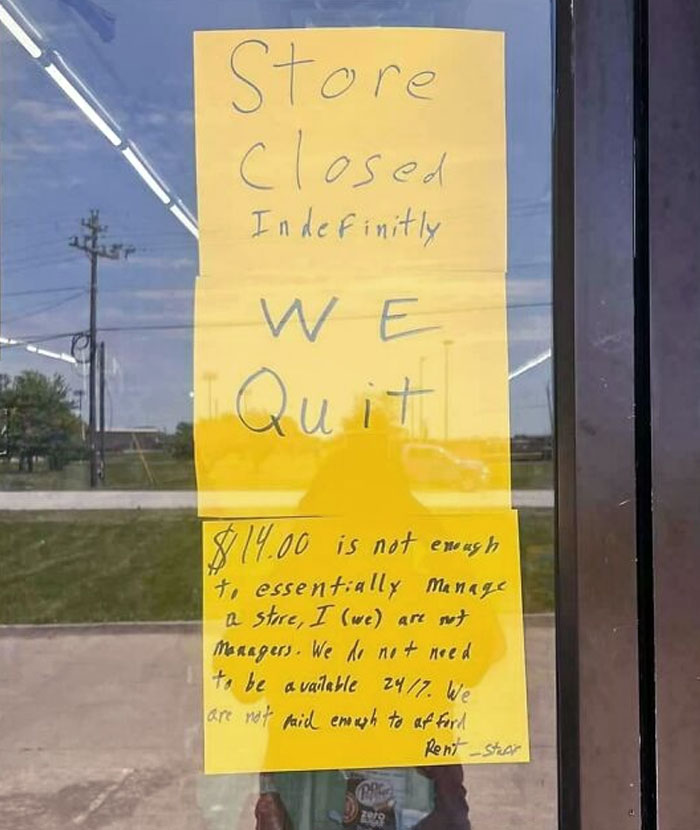 Store
Closed
Indefinitly
WE
Quit
$14.00 is not enough
to essentially manage
a store, I (we) are not
managers. We do not need
to be available 24/7. We
are not paid enough to afford
Rent - Staff
Dr Pepper
zero